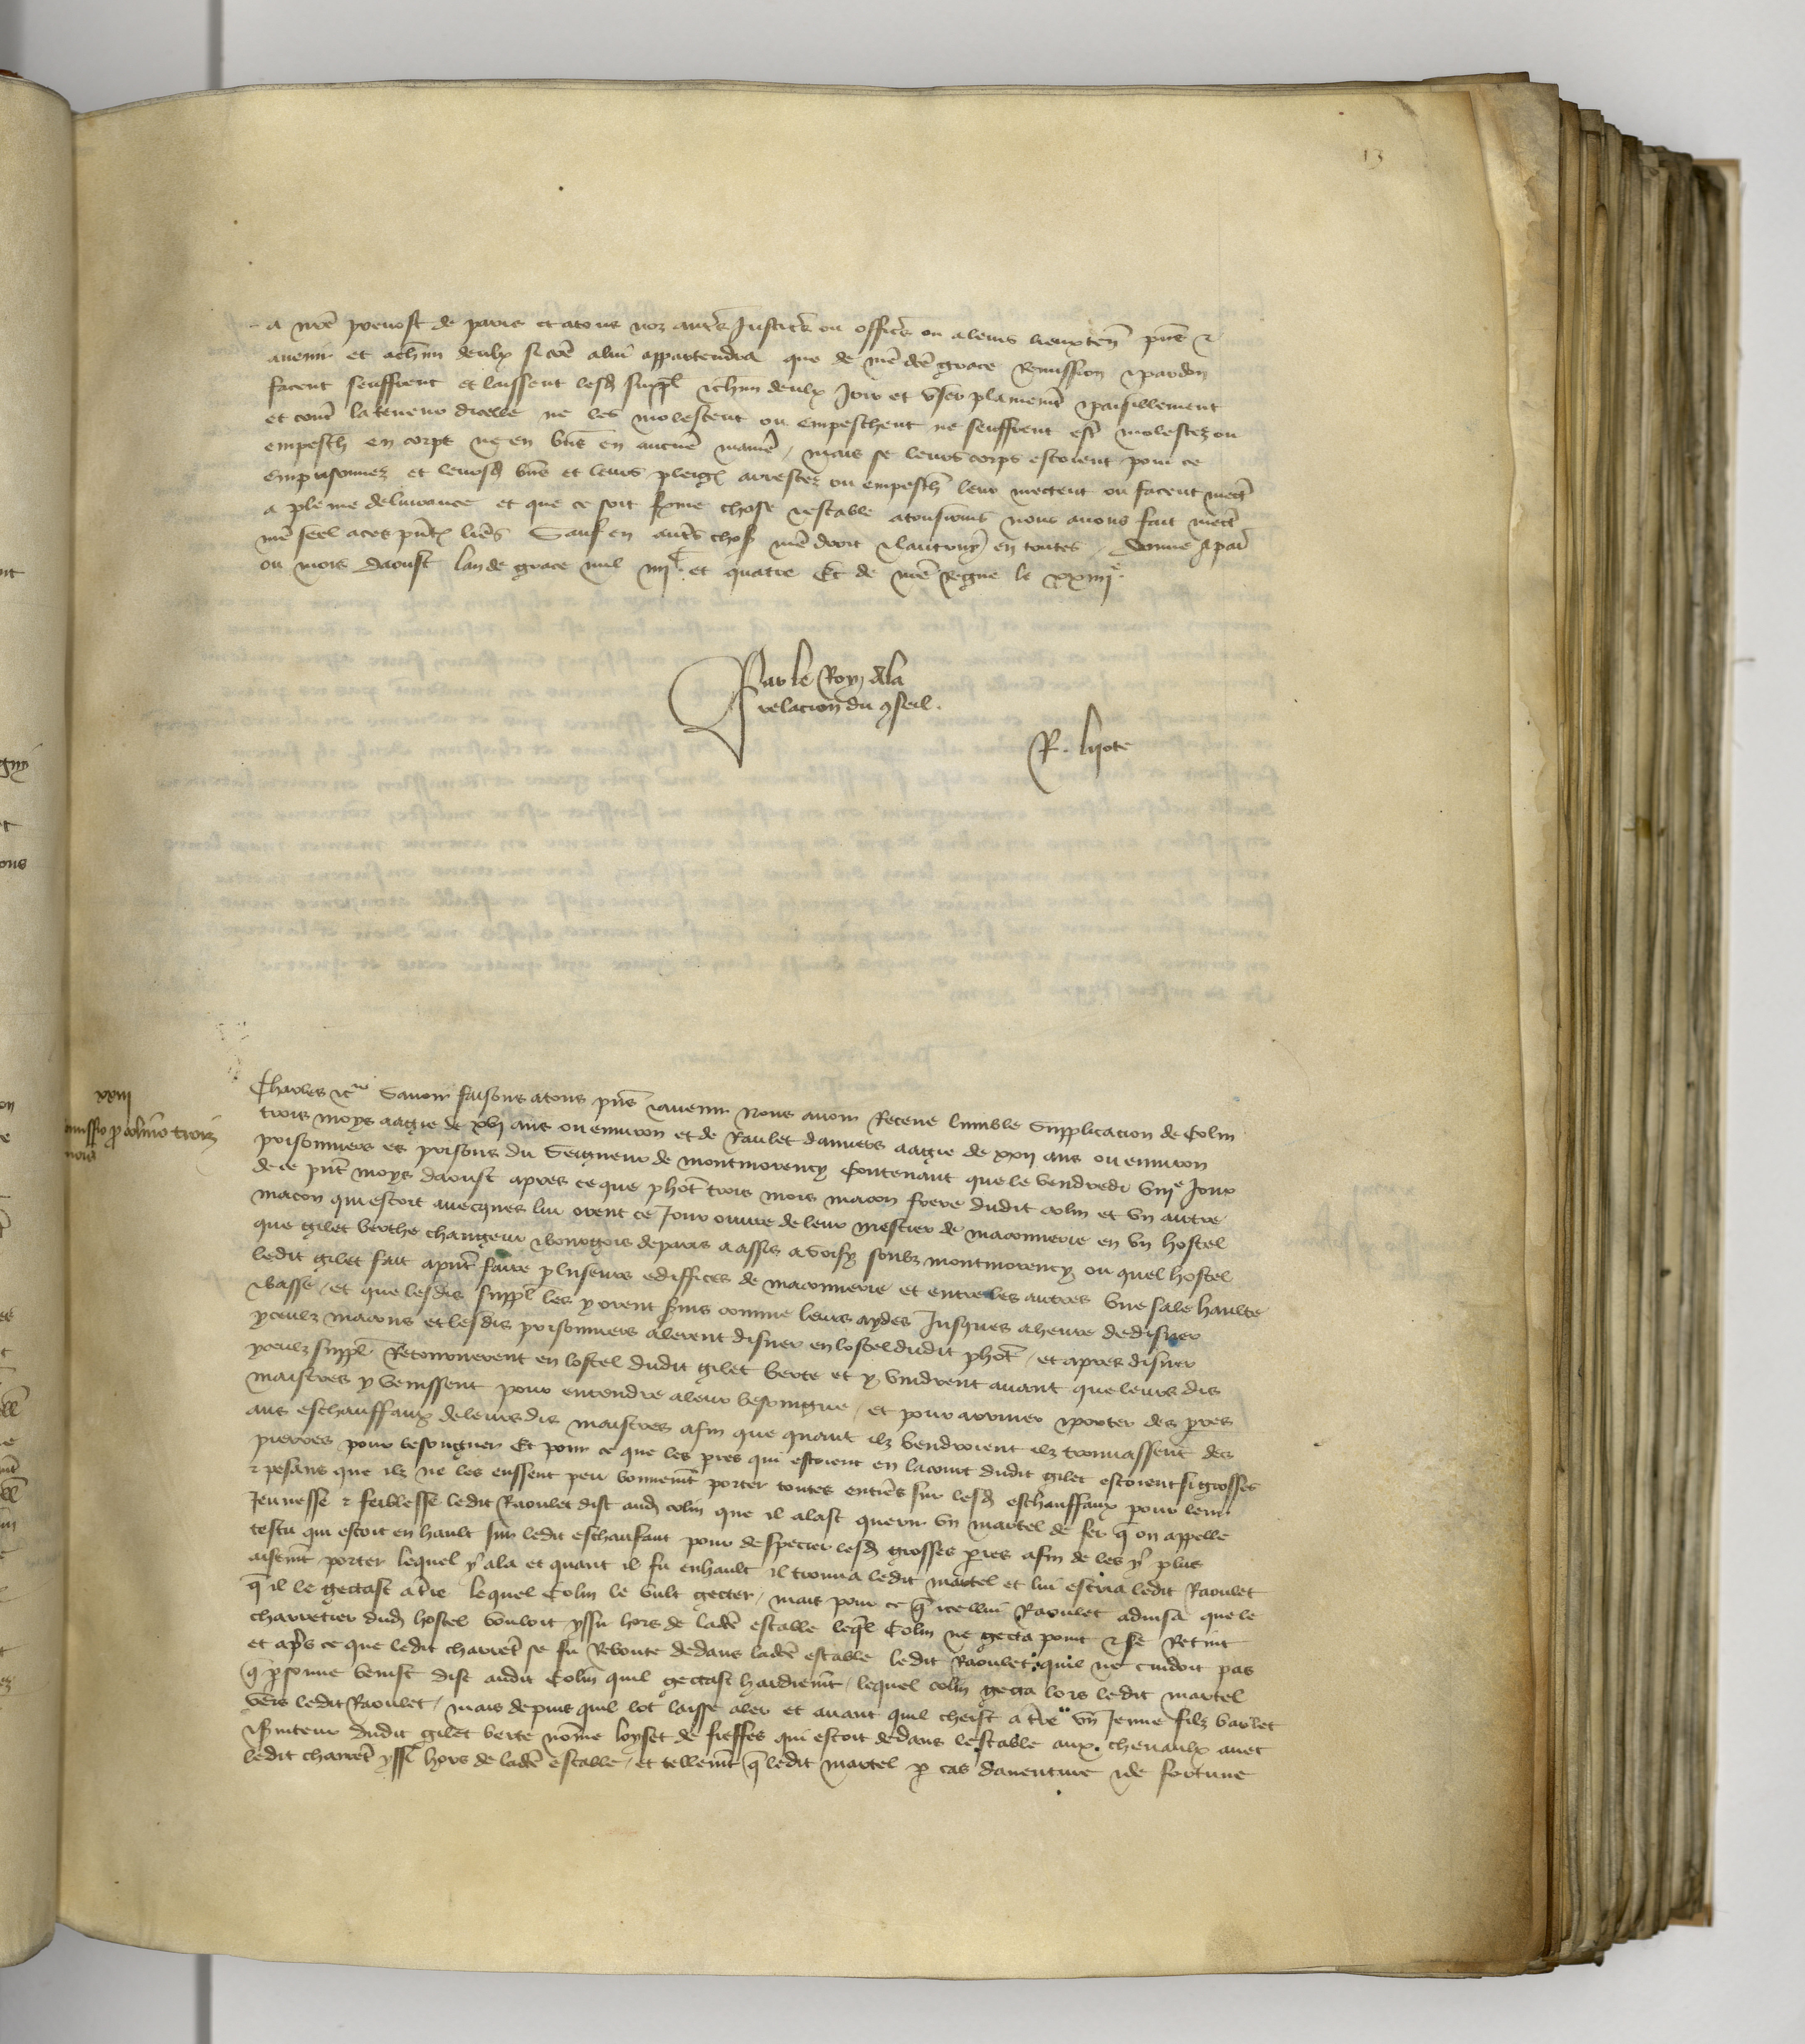 13
a nr̃e prevost de paris et a tous noz autr̃s Justicr̃s ou officr̃s ou a leurs lieuxten̄ p̃ns &
avenir et a ch̃un deulx si cõe a lui appartendra que de nr̃e d̃ce grace Remission & pardon
facent seuffrent et laissent lesd̃ suppl̃ & ch̃un deulx Joir et user plainem̃t & paisiblement
et cont̃ la teneur dicelle ne les molestent ou empeschent ne seuffrent est̃ molestez ou
empesch̃ en corps ne en bñs en aucũe mañe / mais se leurs corps estoient pour ce
emprisonnez et leursd̃ bñs et leurs pleiges arrestez ou empesch̃ leur mettent ou facent mett̃
a pleine delivrance et que ce soit ferme chose & estable a tousiours nous avons fait mett̃
nr̃e seel a ces p̃ntes lr̃es Sauf en autr̃s choses nr̃e droit & lautruy en toutes / Donne a par̃
ou mois daoust lan de grace mil iiij c et quatre Et de nr̃e Regne le xxiiij e.
Par le Roy a la
relacion du 9seil.
R. lyote
xxiij
Remissio p̱ colino trois
mois
Charles &c Savoir faisons a tous p̃ns & avenir Nous avoir Receue lumble Supplicacion de Colin
trois moys aagie de xvj ans ou environ et de Raulet danvers aagie de xxij ans ou environ
prisonniers es prisons du Seigneur de montmorency Contenant que le vendredi viij e Jour
de ce p̃nt moys daoust apres ce que ph̃ot trois mois macon frere dudit colin et un autre
macon qui estoit avecques lui orent ce Jour ouvre de leur mestier de maconnerie en un hostel
que gilet berthe changeur & bourgois de paris a assis a soisy soubz montmorency ou quel hostel
ledit gilet fait a p̃nt faire pluseurs ediffices de maconnerie et entre les autres une sale haulte
& basse / et que lesdis suppl̃ les y orent servis comme leurs aydes Jusques a heure de disner
yceulx macons et lesdis prisonniers alerent disner en lostel dudit ph̃ot / et apres disner
yceulx suppl̃ Retournerent en lostel dudit gilet berte et y vindrent avant que leurs dis
maistres y venissent pour entendre a leur besoingne / et pour arriver & porter des p̱res
aus eschauffaux de leurs dis maistres afin que quant ilz vendroient ilz trouvassent des
pierres pour besongner Et pour ce que les p̱res qui estoient en la court dudit gilet estoient si grosses
& pesans que ilz ne les eussent peu bonnem̃t porter toutes entier̃s sur lesd̃ eschauffaux pour leur
Jeunesse & feiblesse ledit Raoulet dist aud̃ colin que il alast querir un martel de fer q̃ on appelle
testu qui estoit en hault sur ledit eschaufaut pour despecier lesd̃ grosses p̱res afin de les y plus
aisem̃t porter lequel y ala et quant il fu en hault il trouva ledit martel et lui escria ledit Raoulet
q̃ il le gettast a t̃re lequel Colin le vult getter / mais pour ce q̃ icellui Raoulet advisa que le
charretier dud̃ hostel vouloit yssir hors de lad̃ce estable leq̃l Colin ne getta point & se Retint
et ap̃s ce que ledit charret̃ se fu Reboute dedans lad̃ce estable ledit Raoulet quil ne cuidoit pas
q̃ p̱sonne venist dist audit Colin quil gettast hardiem̃t / lequel colin getta lors ledit martel
vers ledit Raoulet / mais depuis quil lot laissie aler et avant quil cheist a t̃re un Jeune filz varlet
& s̃viteur dudit gilet berte nom̃e loyset de fieffes qui estoit dedans lestable aux chevaulx avec
ledit charret̃ yssi hors de lad̃ce estable / et tellem̃t q̃ ledit martel p̱ cas daventure & de fortune